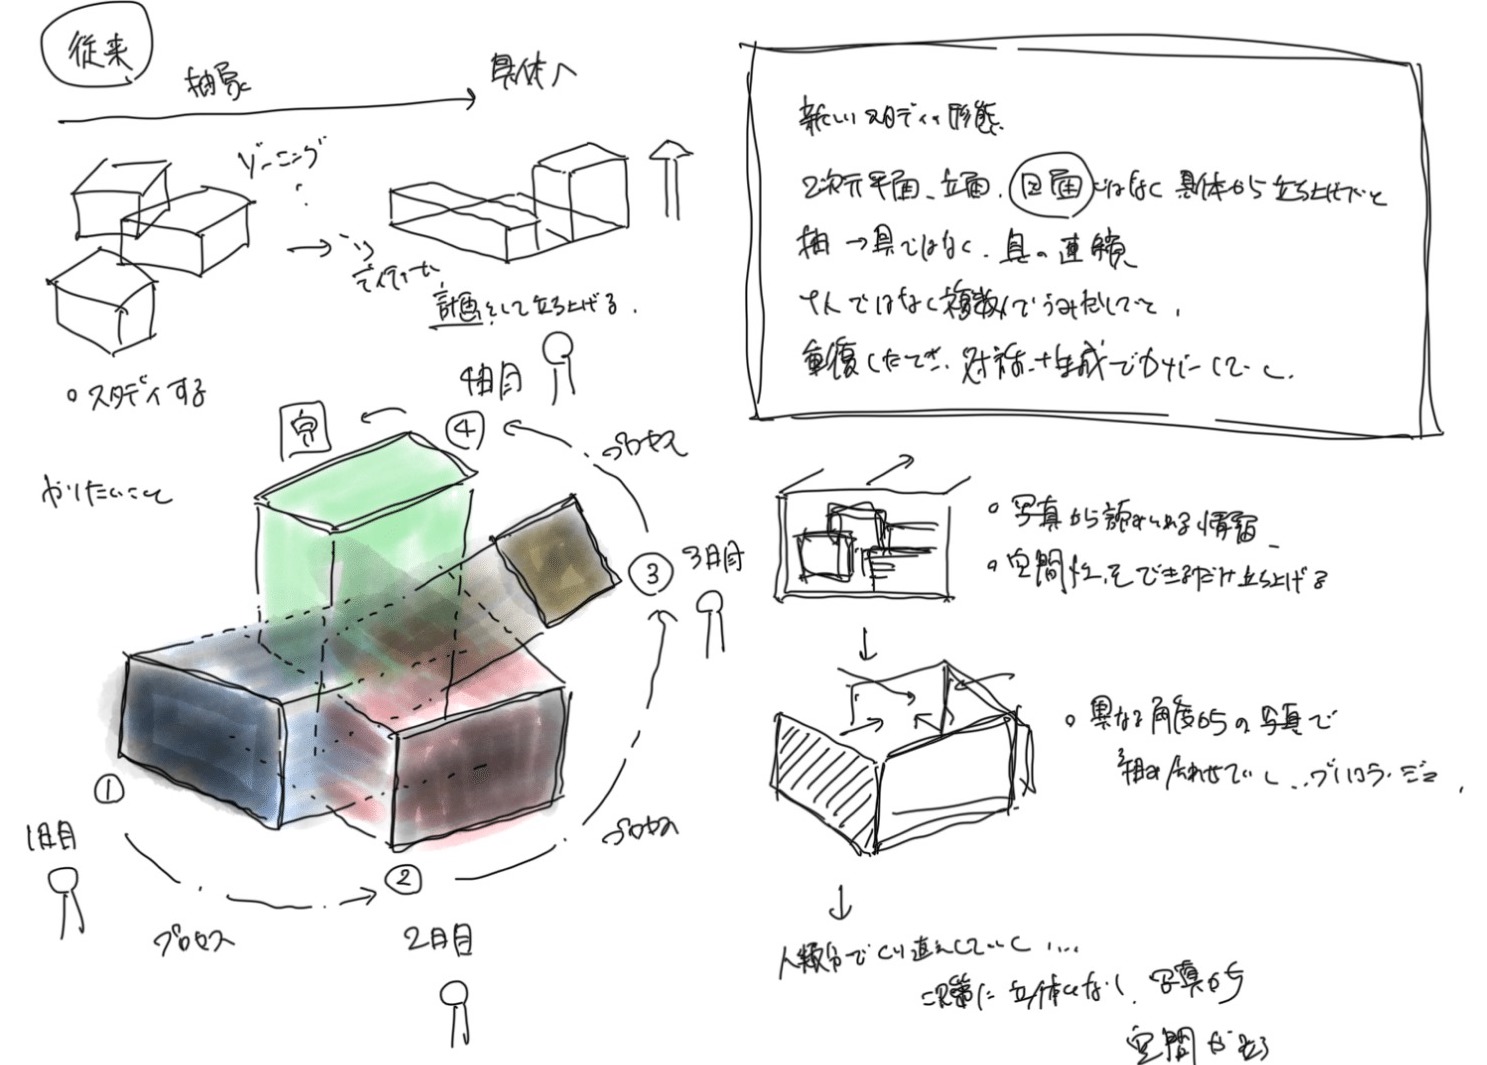 従来
抽象
具体へ
ゾーニング
計画として立ち上げる.
スタディする
新しいスタディの形態.
2次元平面、立面、図面ではなく具体から立ち上げていく
抽→具ではなく、具の連鎖
1人ではなく複数人でうみだしていく.
重複した
生成で
やりたいこと
空
④
4日目
プロセス
③
3日目
①
1日目
プロセス
②
2日目
プロセス
写真から読みとれる情報
空間性をできるだけ立ち上げる
異なる角度からの写真で
組み合わせていく...
人数分でくり返していく....
次第に立体になり、写真から
空間が